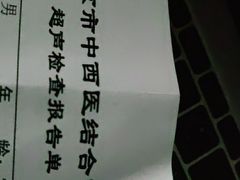 市中西医结合
超声检查报告单
男 年龄